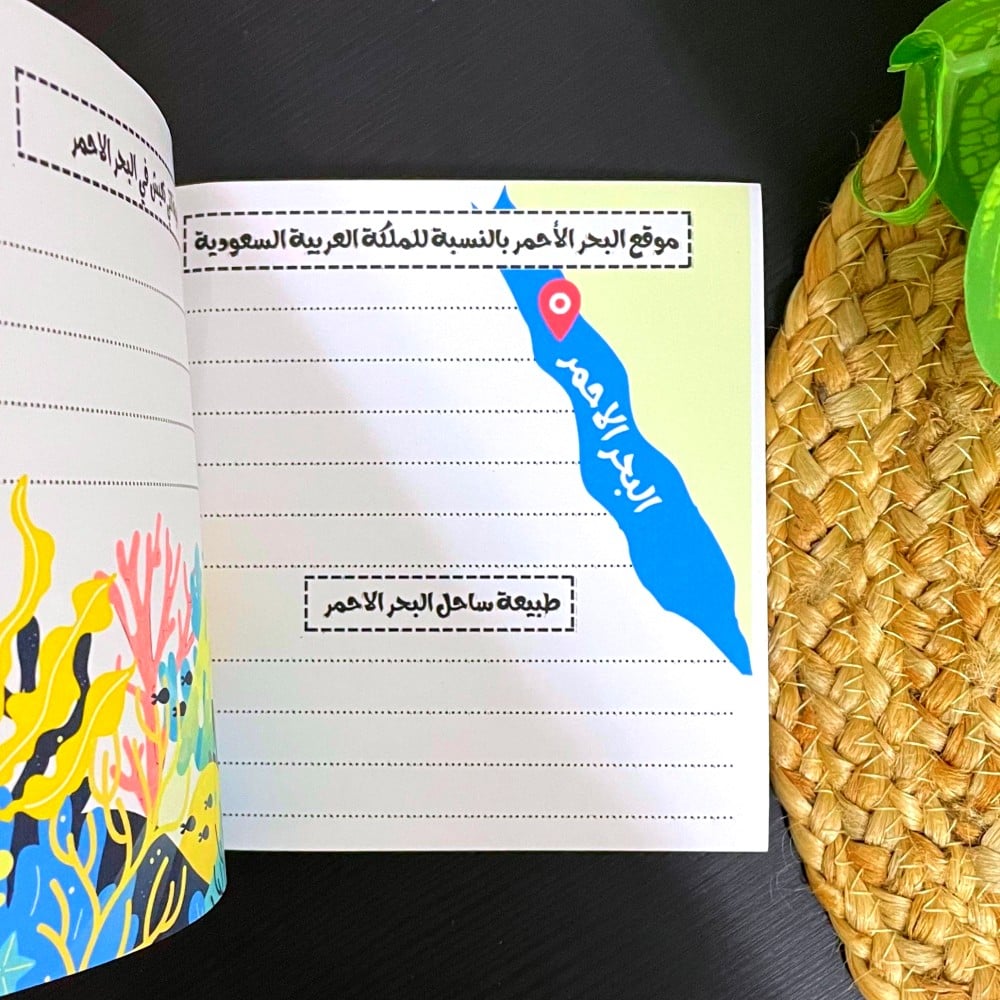 موقع البحر الأحمر بالنسبة للملكة العربية السعودية
البحر الاحمر
طبيعة ساحل البحر الاحمر
في البحر الاحمر